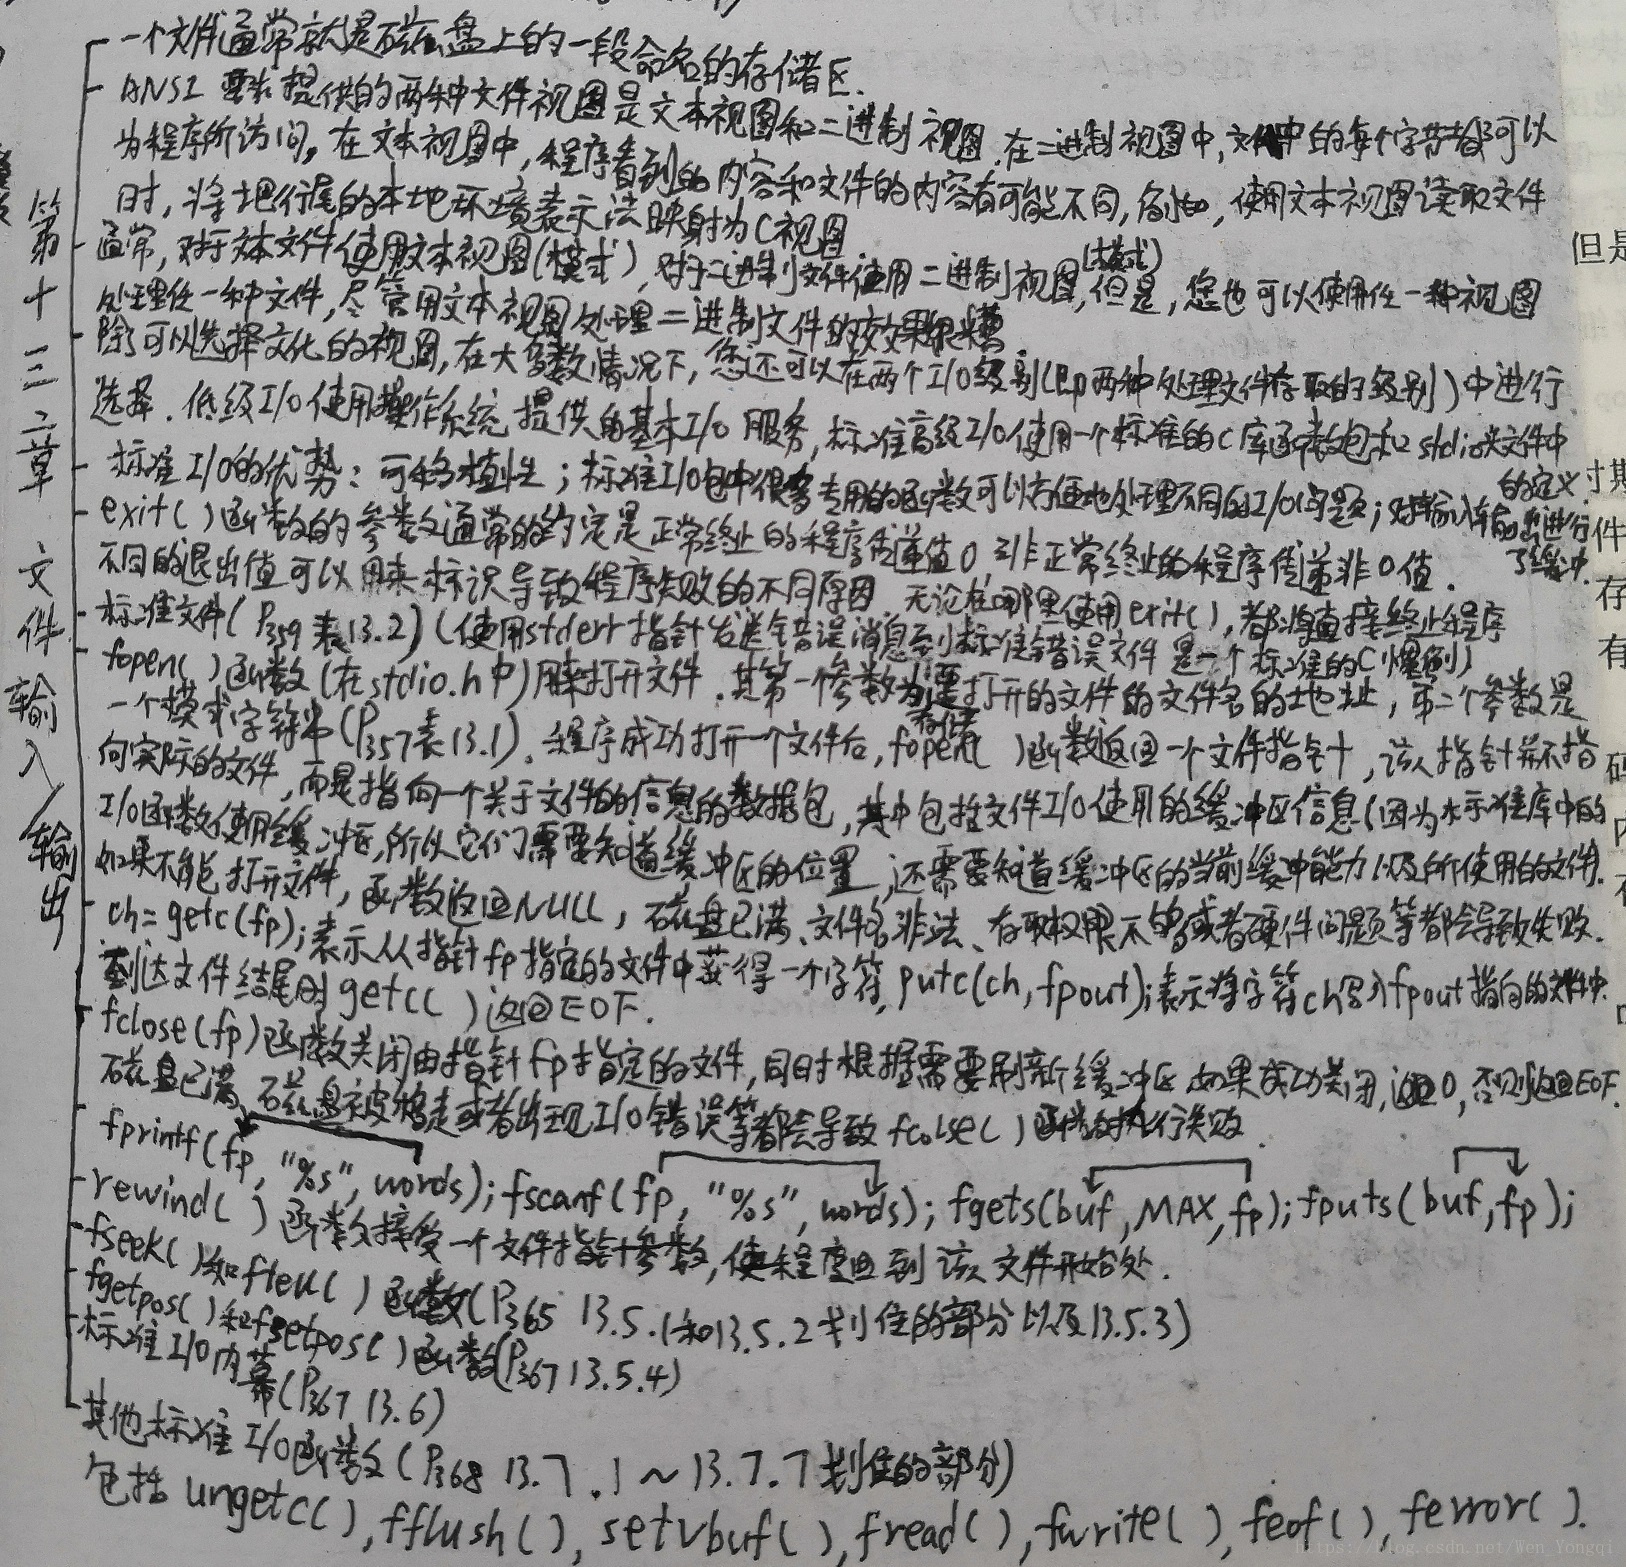 第十三章 文件输入/输出
一个文件通常就是磁盘上的一段命名的存储区.
ANSI 要求提供的两种文件视图是文本视图和二进制视图.在二进制视图中,文件中的每个字节都可以
为程序所访问。在文本视图中,程序看到的内容和文件的内容有可能不同,例如,使用文本视图读取文件
时,将把行尾的本地环境表示法映射为C视图
通常,对于文本文件使用文本视图(模式),对于二进制文件使用二进制视图(模式),但是,您也可以使用任一种视图
处理任一种文件,尽管用文本视图处理二进制文件的效果很糟
除了可以选择文化的视图,在大多数情况下,您还可以在两个I/O级别(即两种处理文件存取的级别)中进行
选择.低级I/O使用操作系统提供的基本I/O服务,标准高级I/O使用一个标准的C库函数包和stdio头文件中
的定义
标准I/O的优势:可移植性;标准I/O包中很多专用的函数可以方便地处理不同的I/O问题;对输入输出进行
了缓冲.
exit()函数的参数通常的约定是正常终止的程序传递值0 非正常终止的程序传递非0值.
不同的退出值可以用来标识导致程序失败的不同原因 无论在哪里使用exit(),都将直接终止程序
标准文件(P359表13.2)(使用stderr指针发送错误消息到标准错误文件是一个标准的C惯例)
fopen()函数(在stdio.h中)用来打开文件.其第一个参数为存储要打开的文件的文件名的地址,第二个参数是
一个模式字符串(P357表13.1).程序成功打开一个文件后,fopen()函数返回一个文件指针,该指针并不指
向实际的文件,而是指向一个关于文件的信息的数据包,其中包括文件I/O使用的缓冲区信息(因为标准库中的
I/O函数使用缓冲区,所以它们需要知道缓冲区的位置,还需要知道缓冲区的当前缓冲能力以及所使用的文件).
如果不能打开文件,函数返回NULL,磁盘已满、文件名非法、存取权限不够或者硬件问题等都会导致失败.
ch=getc(fp);表示从指针fp指定的文件中获得一个字符,putc(ch,fpout);表示将字符ch写入fpout指向的文件中.
到达文件结尾时getc()返回EOF.
fclose(fp)函数关闭由指针fp指定的文件,同时根据需要刷新缓冲区 如果成功关闭,返回0,否则返回EOF.
磁盘已满、磁盘被移走或者出现I/O错误等都会导致fcolse()函数执行失败.
fprintf(fp,"%s",words);fscanf(fp,"%s",words);fgets(buf,MAX,fp);fputs(buf,fp);
rewind()函数接受一个文件指针参数,使程序回到该文件开始处.
fseek()和ftell()函数(P365 13.5.1和13.5.2划住的部分以及13.5.3)
fgetpos()和fsetpos()函数(P367 13.5.4)
标准I/O内幕(P367 13.6)
其他标准I/O函数(P368 13.7.1~13.7.7划住的部分)
包括ungetc(),fflush(),setvbuf(),fread(),fwrite(),feof(),ferror().
但是
件
存
有
码
内
https://blog.csdn.net/Wen_Yongqi